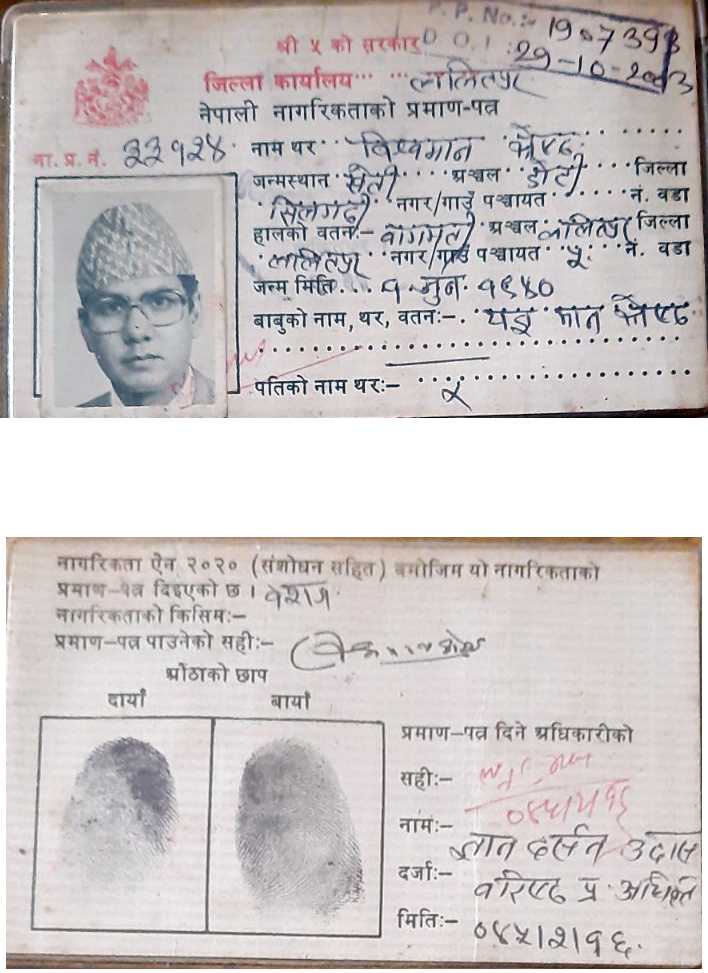 P.P. No.:- 1907393
D.O.I.: 29-10-2003
श्री ५ को सरकार
जिल्ला कार्यालय ... ... ललितपुर
नेपाली नागरिकताको प्रमाण-पत्र
ना. प्र. नं. ३३९२४ नाम थर विश्वमान श्रेष्ठ
जन्मस्थान सेती अञ्चल डोटी जिल्ला
सिलगढी नगर/गाउँ पञ्चायत नं. वडा
हालको वतन:- वागमती अञ्चल ललितपुर जिल्ला
ललितपुर नगर/गाउँ पञ्चायत ५ नं. वडा
जन्म मिति ... १ जुन १९५०
बाबुको नाम, थर, वतन:- मान श्रेष्ठ
पतिको नाम थर:- x
नागरिकता ऐन २०२० (संशोधन सहित) बमोजिम यो नागरिकताको
प्रमाण-पत्र दिइएको छ । वंशज
नागरिकताको किसिम:-
प्रमाण-पत्र पाउनेको सही:-
औंठाको छाप
दायाँ बायाँ
प्रमाण-पत्र दिने अधिकारीको
सही:-
नाम:- ज्ञान दर्सन उदास
दर्जा:- वरिष्ठ प्र. अधिकृत
मिति:- ०४५।२।१६